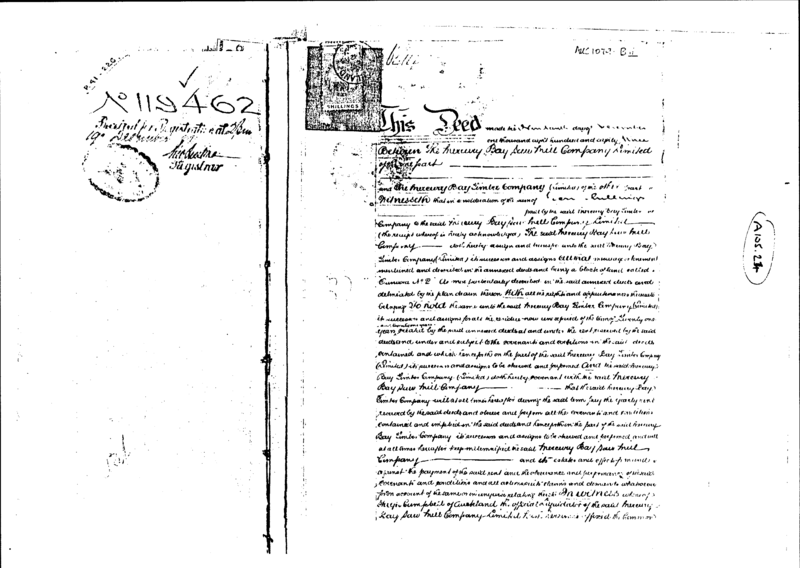 No 119462
Received for Registration at
Registrar
SHILLINGS
A105.234
This Deed made the day of
one thousand eight hundred and eighty
Between The Mercury Bay Saw Mill Company Limited
of the one part
and The Mercury Bay Timber Company (Limited) of the other part
Witnesseth that in consideration of the sum of
paid by the said Mercury Bay Timber
Company to the said Mercury Bay Saw Mill Company Limited
(the receipt whereof is hereby acknowledged) The said Mercury Bay Saw Mill
Company doth hereby assign and transfer unto the said Mercury Bay
Timber Company (Limited) its successors and assigns all that
mentioned and described in the annexed deeds and being a block of land called
No 2 as more particularly described in the said annexed deeds and
delineated by the plan drawn thereon With all the rights and appurtenances thereto
belonging To hold the same unto the said Mercury Bay Timber Company (Limited)
its successors and assigns for all the residue now unexpired of the term of Twenty one
years created by the said annexed deeds at and under the rent reserved by the said
deeds and under and subject to the covenants and conditions in the said deeds
contained and which henceforth on the part of the said Mercury Bay Timber Company
(Limited) its successors and assigns to be observed and performed And the said Mercury
Bay Timber Company (Limited) doth hereby covenant with the said Mercury
Bay Saw Mill Company that the said Mercury Bay
Timber Company will at all times hereafter during the said term pay the yearly rent
reserved by the said deeds and observe and perform all the covenants and conditions
contained and implied in the said deeds and henceforth on the part of the said Mercury
Bay Timber Company its successors and assigns to be observed and performed and will
at all times hereafter keep indemnified the said Mercury Bay Saw Mill
Company and its estate and effects
against the payment of the said rent and the observance and performance of the said
covenants and conditions and all actions suits claims and demands whatsoever
for or on account of the same or in anywise relating thereto In witness whereof
Campbell of Auckland the official liquidator of the said Mercury
Bay Saw Mill Company Limited has hereunto affixed the common